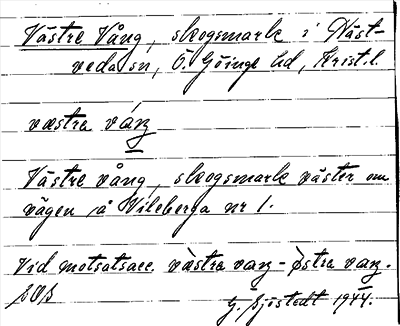 Västre Vång, skogsmark i Häst-
veda sn, Ö. Göinge hd, Krist.l.
væstra váŋ
Västre vång, skogsmark väster om
vägen å Vileberga nr 1.
Vid motsatsacc. væ̀stra vaŋ - ø̀stra vaŋ.
G. Sjöstedt 1944.